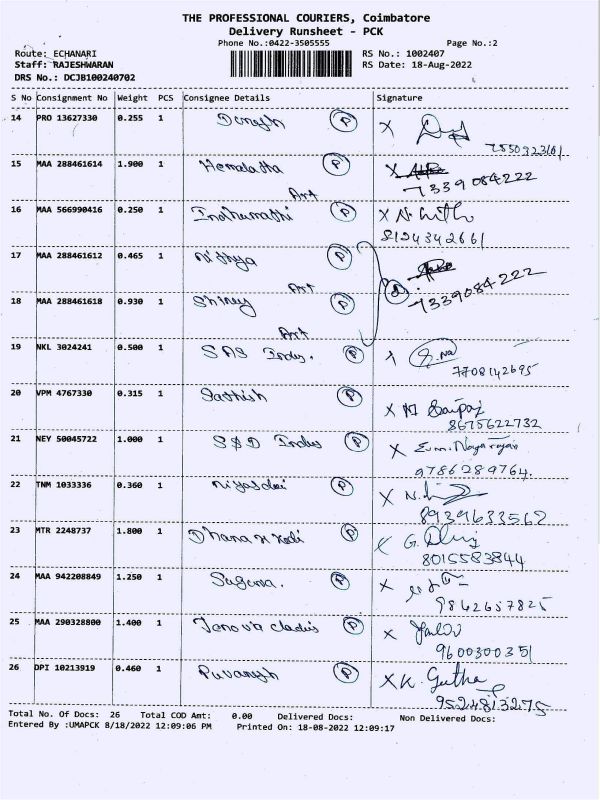 THE PROFESSIONAL COURIERS, Coimbatore
Delivery Runsheet - PCK
Phone No.:0422-3505555 Page No.:2
Route: ECHANARI RS No.: 1002407
Staff: RAJESHWARAN RS Date: 18-Aug-2022
DRS No.: DCJB100240702
S No Consignment No Weight PCS Consignee Details Signature
14 PRO 13627330 0.255 1 P X
7550923161
15 MAA 288461614 1.900 1 Hemalatha P X
Art 7339084222
16 MAA 566990416 0.250 1 Indhumathi P X
8124342661
17 MAA 288461612 0.465 1 Nithya P
Art 7339084222
18 MAA 288461618 0.930 1 Shiney P
Art
19 NKL 3024241 0.500 1 SAS Indus. P
7708142695
20 VPM 4767330 0.315 1 Sathish P X
8675622732
21 NEY 50045722 1.000 1 S&D Indus P X
9786289764.
22 TNM 1033336 0.360 1 P X
8939633562
23 MTR 2248737 1.800 1 P
8015583844
24 MAA 942208849 1.250 1 Suguna. P X
9842657825
25 MAA 290328800 1.400 1 P X
9600300351
26 DPI 10213919 0.460 1 P X K. Geetha
9524813275
Total No. Of Docs: 26 Total COD Amt: 0.00 Delivered Docs: Non Delivered Docs:
Entered By :UMAPCK 8/18/2022 12:09:06 PM Printed On: 18-08-2022 12:09:17